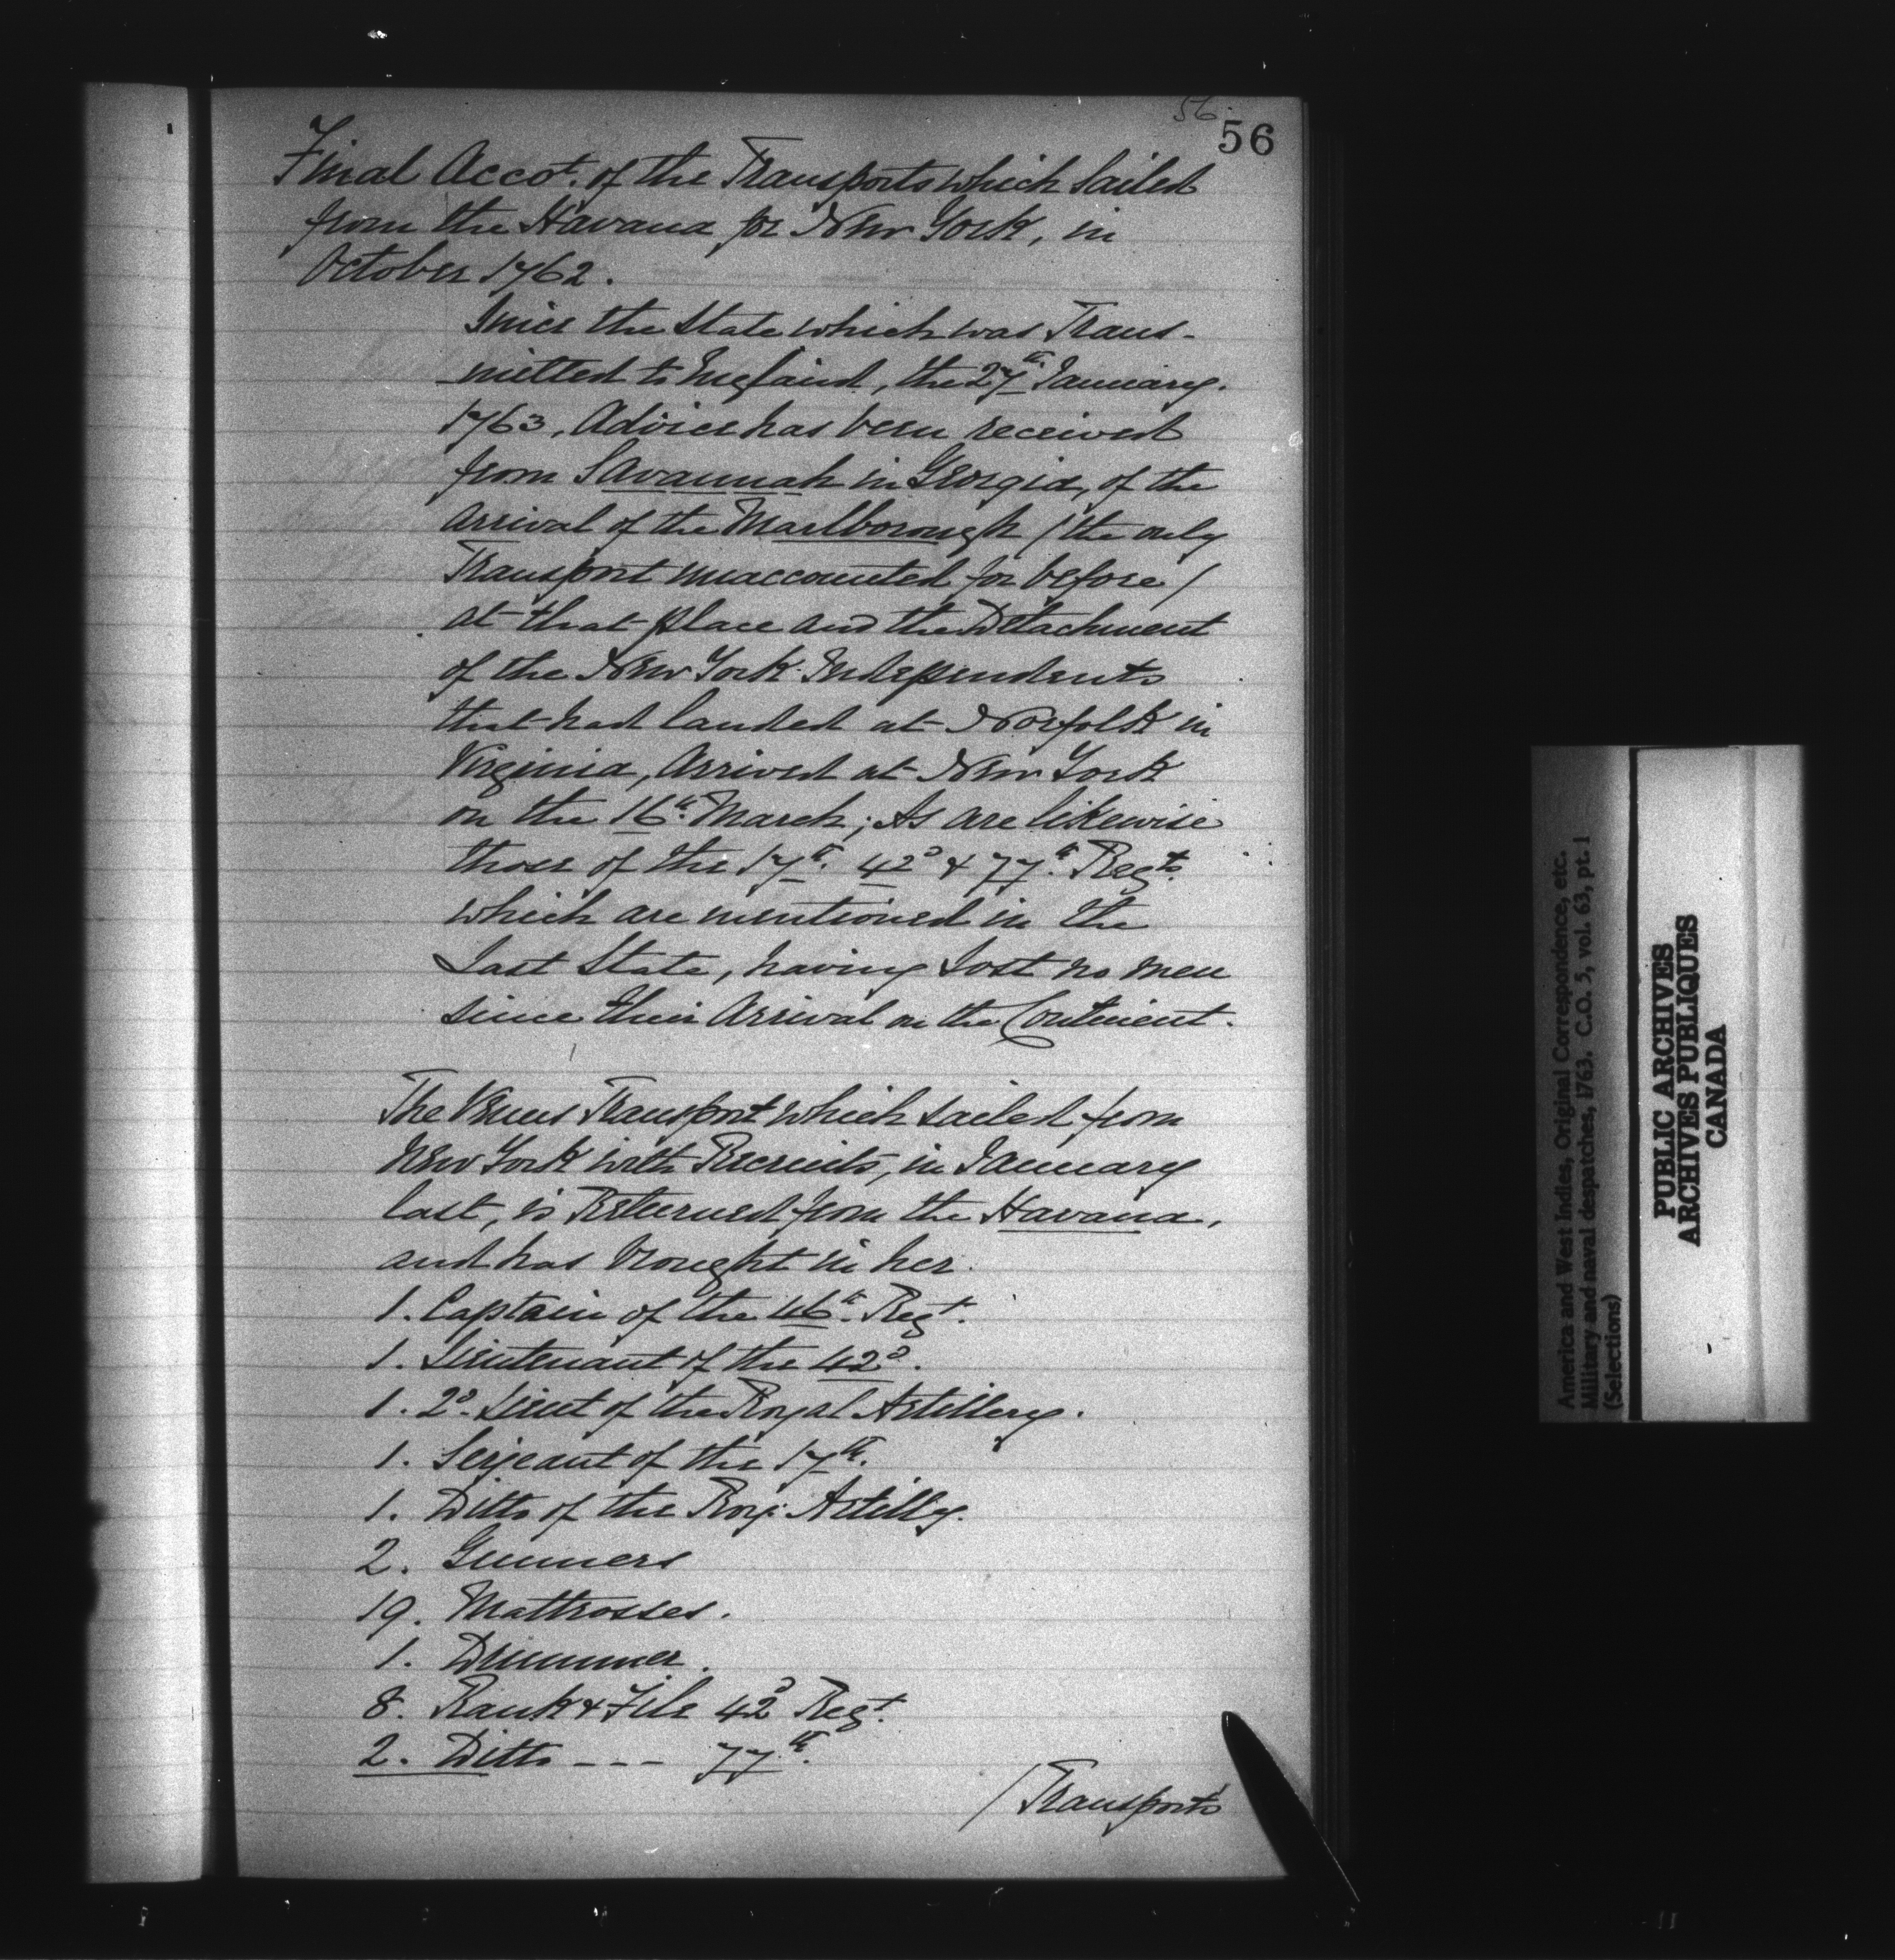 56
56
Final Accot. of the Transports which Sailed
from the Havana for New York, in
October 1762.
Since the State which was Trans-
-mitted to England, the 27th. January.
1763, Advice has been received
from Savannah in Georgia, of the
Arrival of the Marlborough / the only
Transport unaccounted for before /
at that place and the Detachment
of the New York Independents
that had landed at Norfolk in
Virginia, Arrived at New York
on the 16th. March; As are likewise
those of the 17th. 42d & 77th. Regts.
which are mentioned in the
Last State, having Lost no men
since their Arrival on the Continent.
The Venus Transport which sailed from
New York with Recruits, in January
last, is Returned from the Havana,
and has brought in her.
1. Captain of the 46th. Regt.
1. Lieutenant of the 42d.
1. 2d. Lieut of the Royal Artillery.
1. Serjeant of the 17th.
1. Ditto of the Roy: Artilly.
2. Gunners
19. Mattrosses.
1. Drummer.
8. Rank & File 42d Regt.
2. Ditto - - - 77th.
/ Transports
America and West Indies, Original Correspondence, etc.
Military and naval despatches, 1763. C.O. 5, vol. 63, pt. 1
(Selections)
PUBLIC ARCHIVES
ARCHIVES PUBLIQUES
CANADA